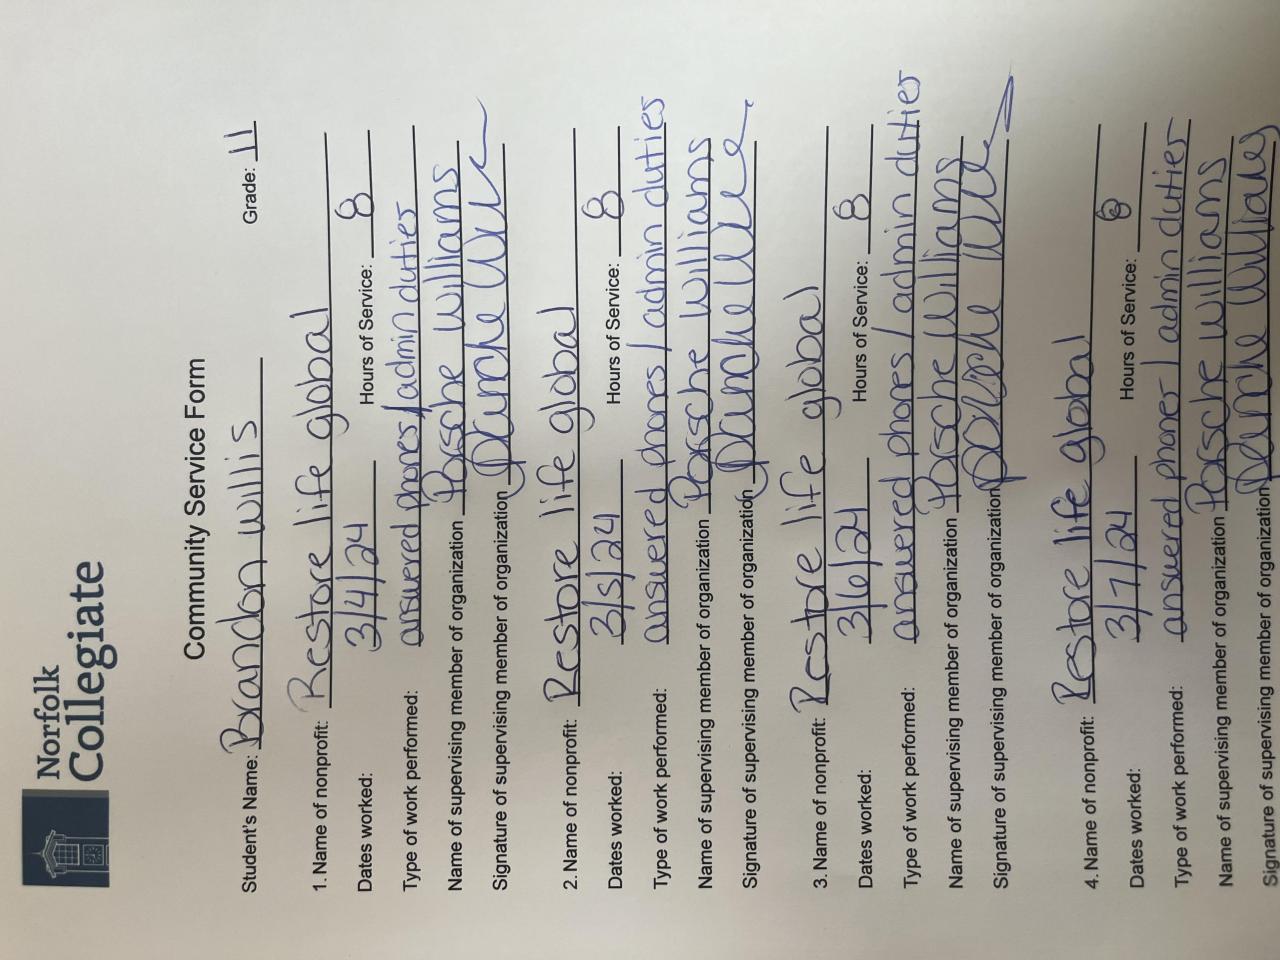 Norfolk
Collegiate
Community Service Form
Student's Name: Brandon Willis Grade: 11
1. Name of nonprofit: Restore life global
Dates worked: 3/4/24 Hours of Service: 8
Type of work performed: answered phones/admin duties
Name of supervising member of organization Porsche Williams
Signature of supervising member of organization
2. Name of nonprofit: Restore life global
Dates worked: 3/5/24 Hours of Service: 8
Type of work performed: answered phones/admin duties
Name of supervising member of organization Porsche Williams
Signature of supervising member of organization
3. Name of nonprofit: Restore life global
Dates worked: 3/6/24 Hours of Service: 8
Type of work performed: answered phones/admin duties
Name of supervising member of organization Porsche Williams
Signature of supervising member of organization
4. Name of nonprofit: Restore life global
Dates worked: 3/7/24 Hours of Service: 8
Type of work performed: answered phones/admin duties
Name of supervising member of organization Porsche Williams
Signature of supervising member of organization